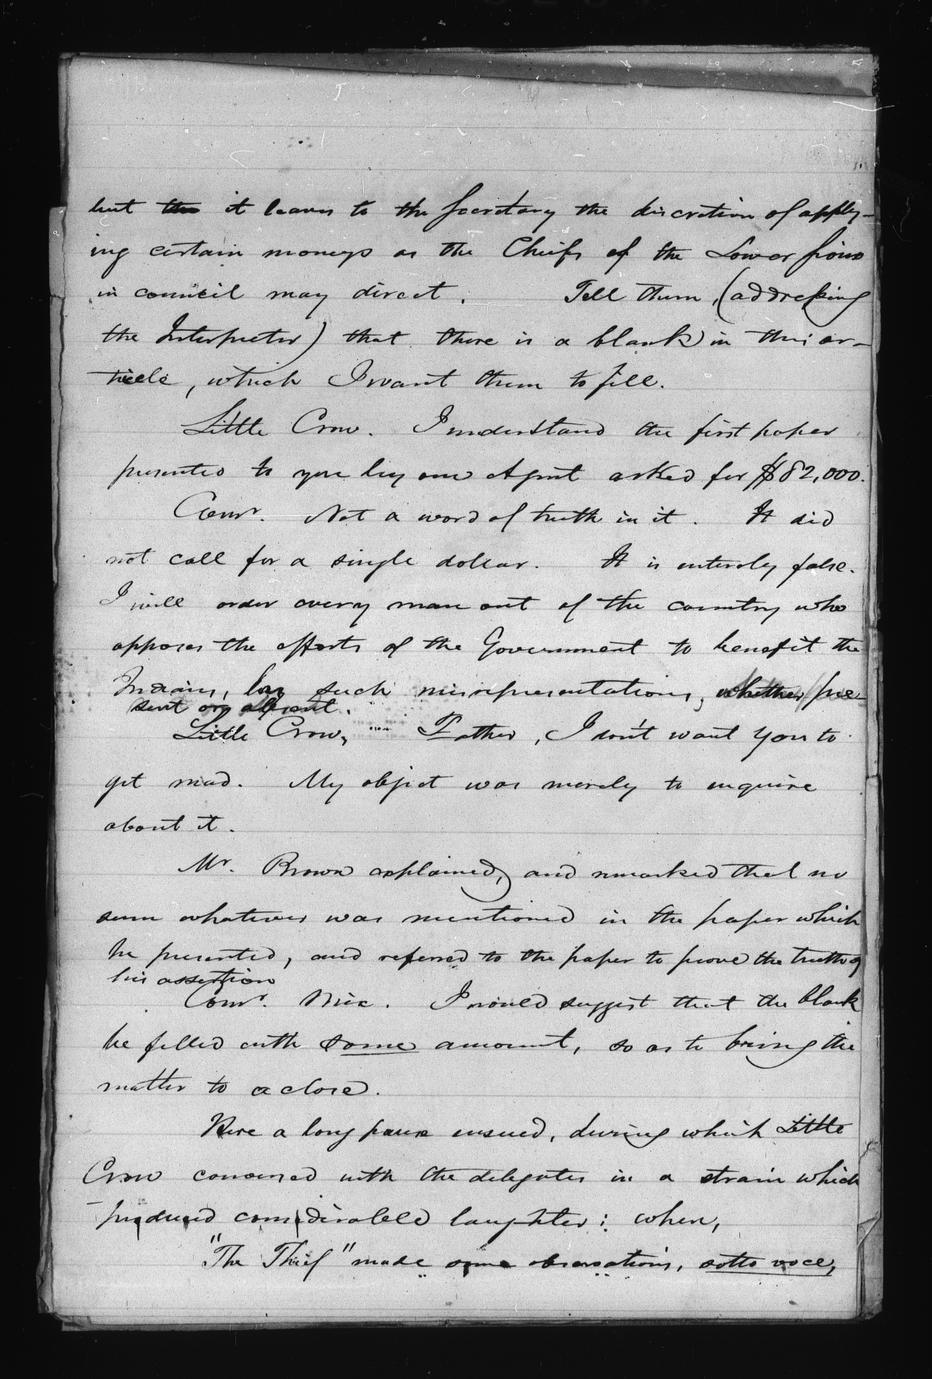 but the it leaves to the Secretary the discretion of apply-
ing certain moneys as the Chiefs of the Lower Sioux
in council may direct. Tell them, (addressing
the Interpreter) that there is a blank in this ar-
ticle, which I want them to fill.
Little Crow. I understand the first paper
presented to you by our Agent asked for $82,000.
Comr. Not a word of truth in it. It did
not call for a single dollar. It is entirely false.
I will order every man out of the country who
opposes the efforts of the Government to benefit the
Indians, by such misrepresentations, whether pre-
sent or absent.
Little Crow, Father, I don't want you to
get mad. My object was merely to enquire
about it.
Mr. Brown explained, and remarked that no
sum whatever was mentioned in the paper which
he presented, and referred to the paper to prove the truth of
his assertion
Comr. Mix. I would suggest that the blank
be filled with some amount, so as to bring the
matter to a close.
Here a long pause ensued, during which Little
Crow conversed with the delegates in a strain which
produced considerable laughter; when,
"The Thief" made some observations, sotto voce,